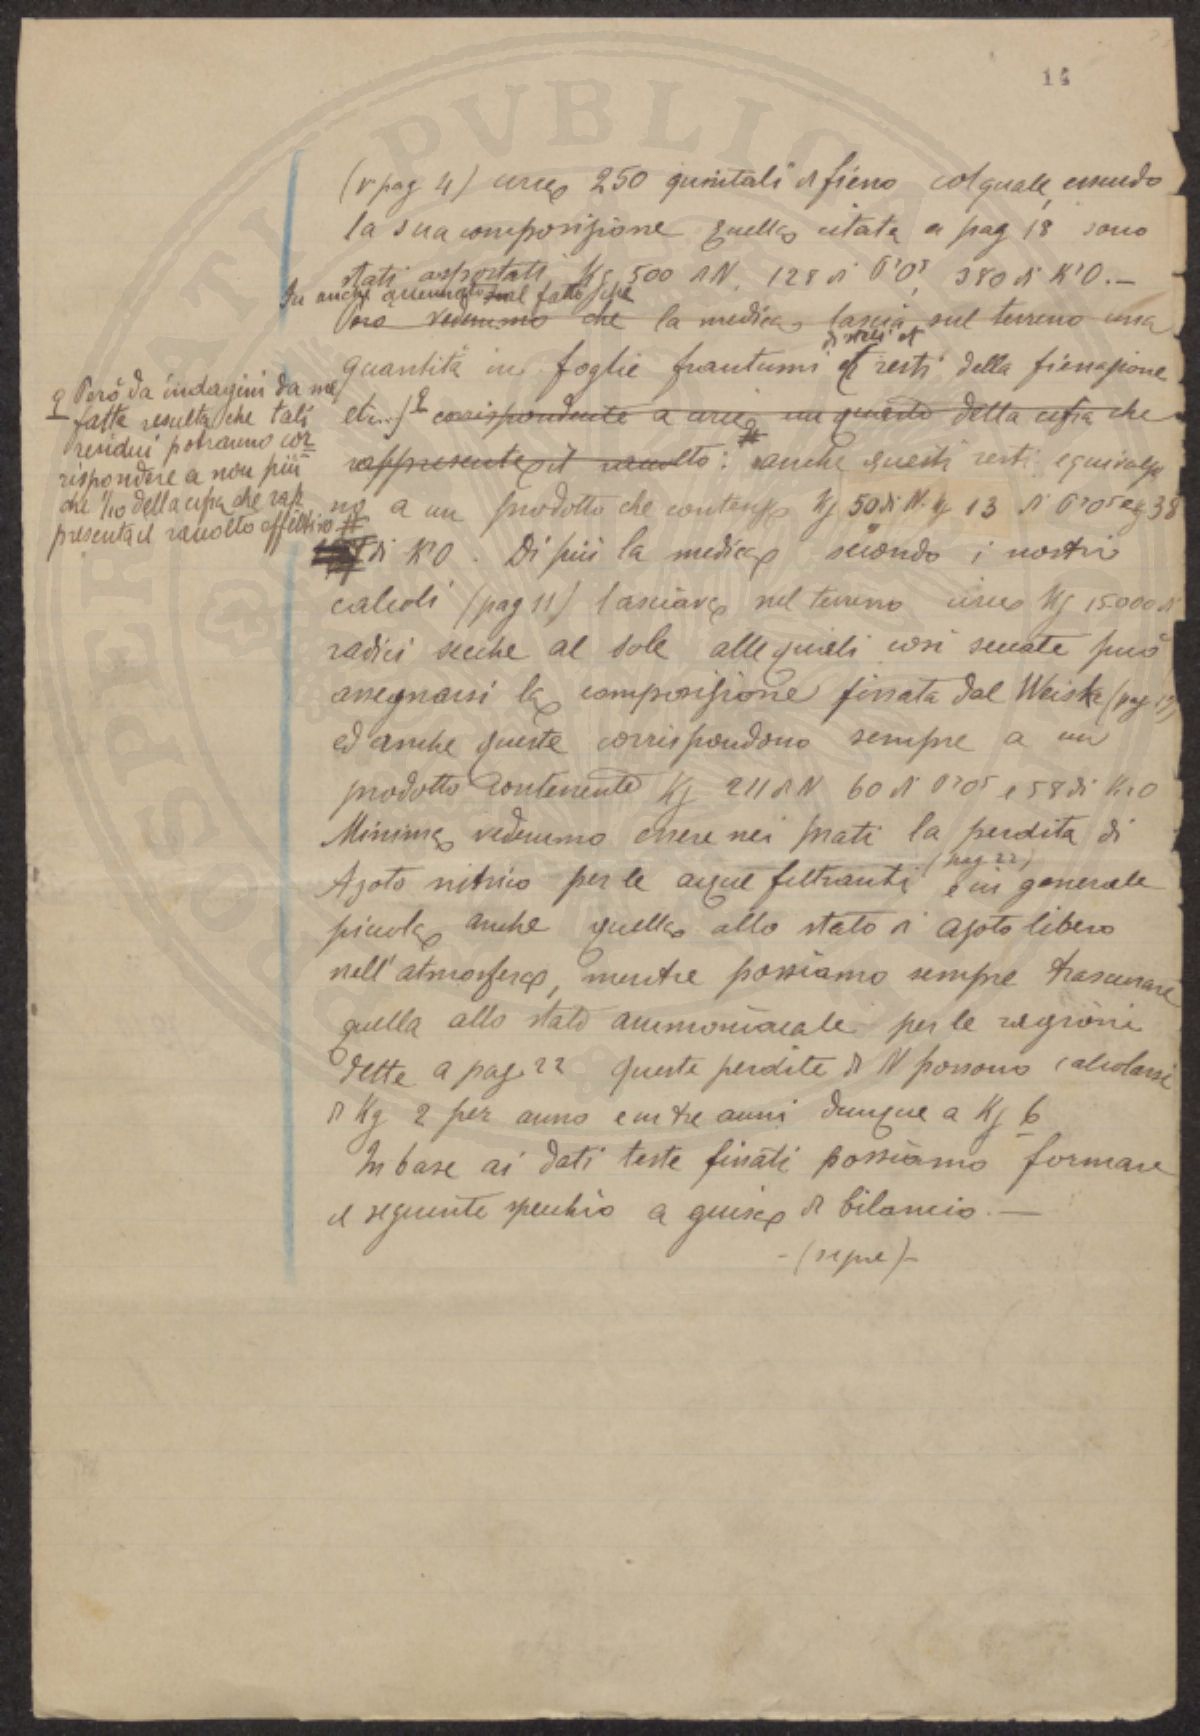 14
(v pag 4) circa 250 quintali di fieno col quale, essendo
la sua composizione quella citata a pag 18 sono
stati asportati Kg 500 di N, 128 di P²O⁵, 380 di K²O.—
Fu anche accennato al fatto
ora vedremo che la medica lascia sul terreno una
di steli et
quantità in foglie frantumi et resti della fienagione
etc...) corrispondente a circa un quarto della cifra che
rappresenta il raccolto: anche questi resti equivalgo
no a un prodotto che contenga Kg 50 di N. Kg 13 di P²O⁵ e Kg 38
di K²O. Di più la medica secondo i nostri
calcoli (pag 11) lasciava nel terreno circa Kg 15000 di
radici secche al sole alle quali così seccate può
assegnarsi la composizione fissata dal Weiske (pag 19)
ed anche queste corrispondono sempre a un
prodotto contenente Kg 211 di N 60 di P²O⁵ e 58 di K2O
Minima vedremo essere nei prati la perdita di
(pag 22)
Azoto nitrico per le acque filtranti e in generale
piccola anche quella allo stato di azoto libero
nell'atmosfera, mentre possiamo sempre trascurare
quella allo stato ammoniacale per le ragioni
dette a pag. 22 Queste perdite di N possono calcolarsi
di Kg 2 per anno e in tre anni dunque a Kg 6
In base ai dati teste fissati possiamo formare
il seguente specchio a guisa di bilancio.—
-(segue)-
Però da indagini da me
fatte resulta che tali
residui potranno cor
rispondere a non più
che 1/10 della cifra che rap
presenta il raccolto effettivo #